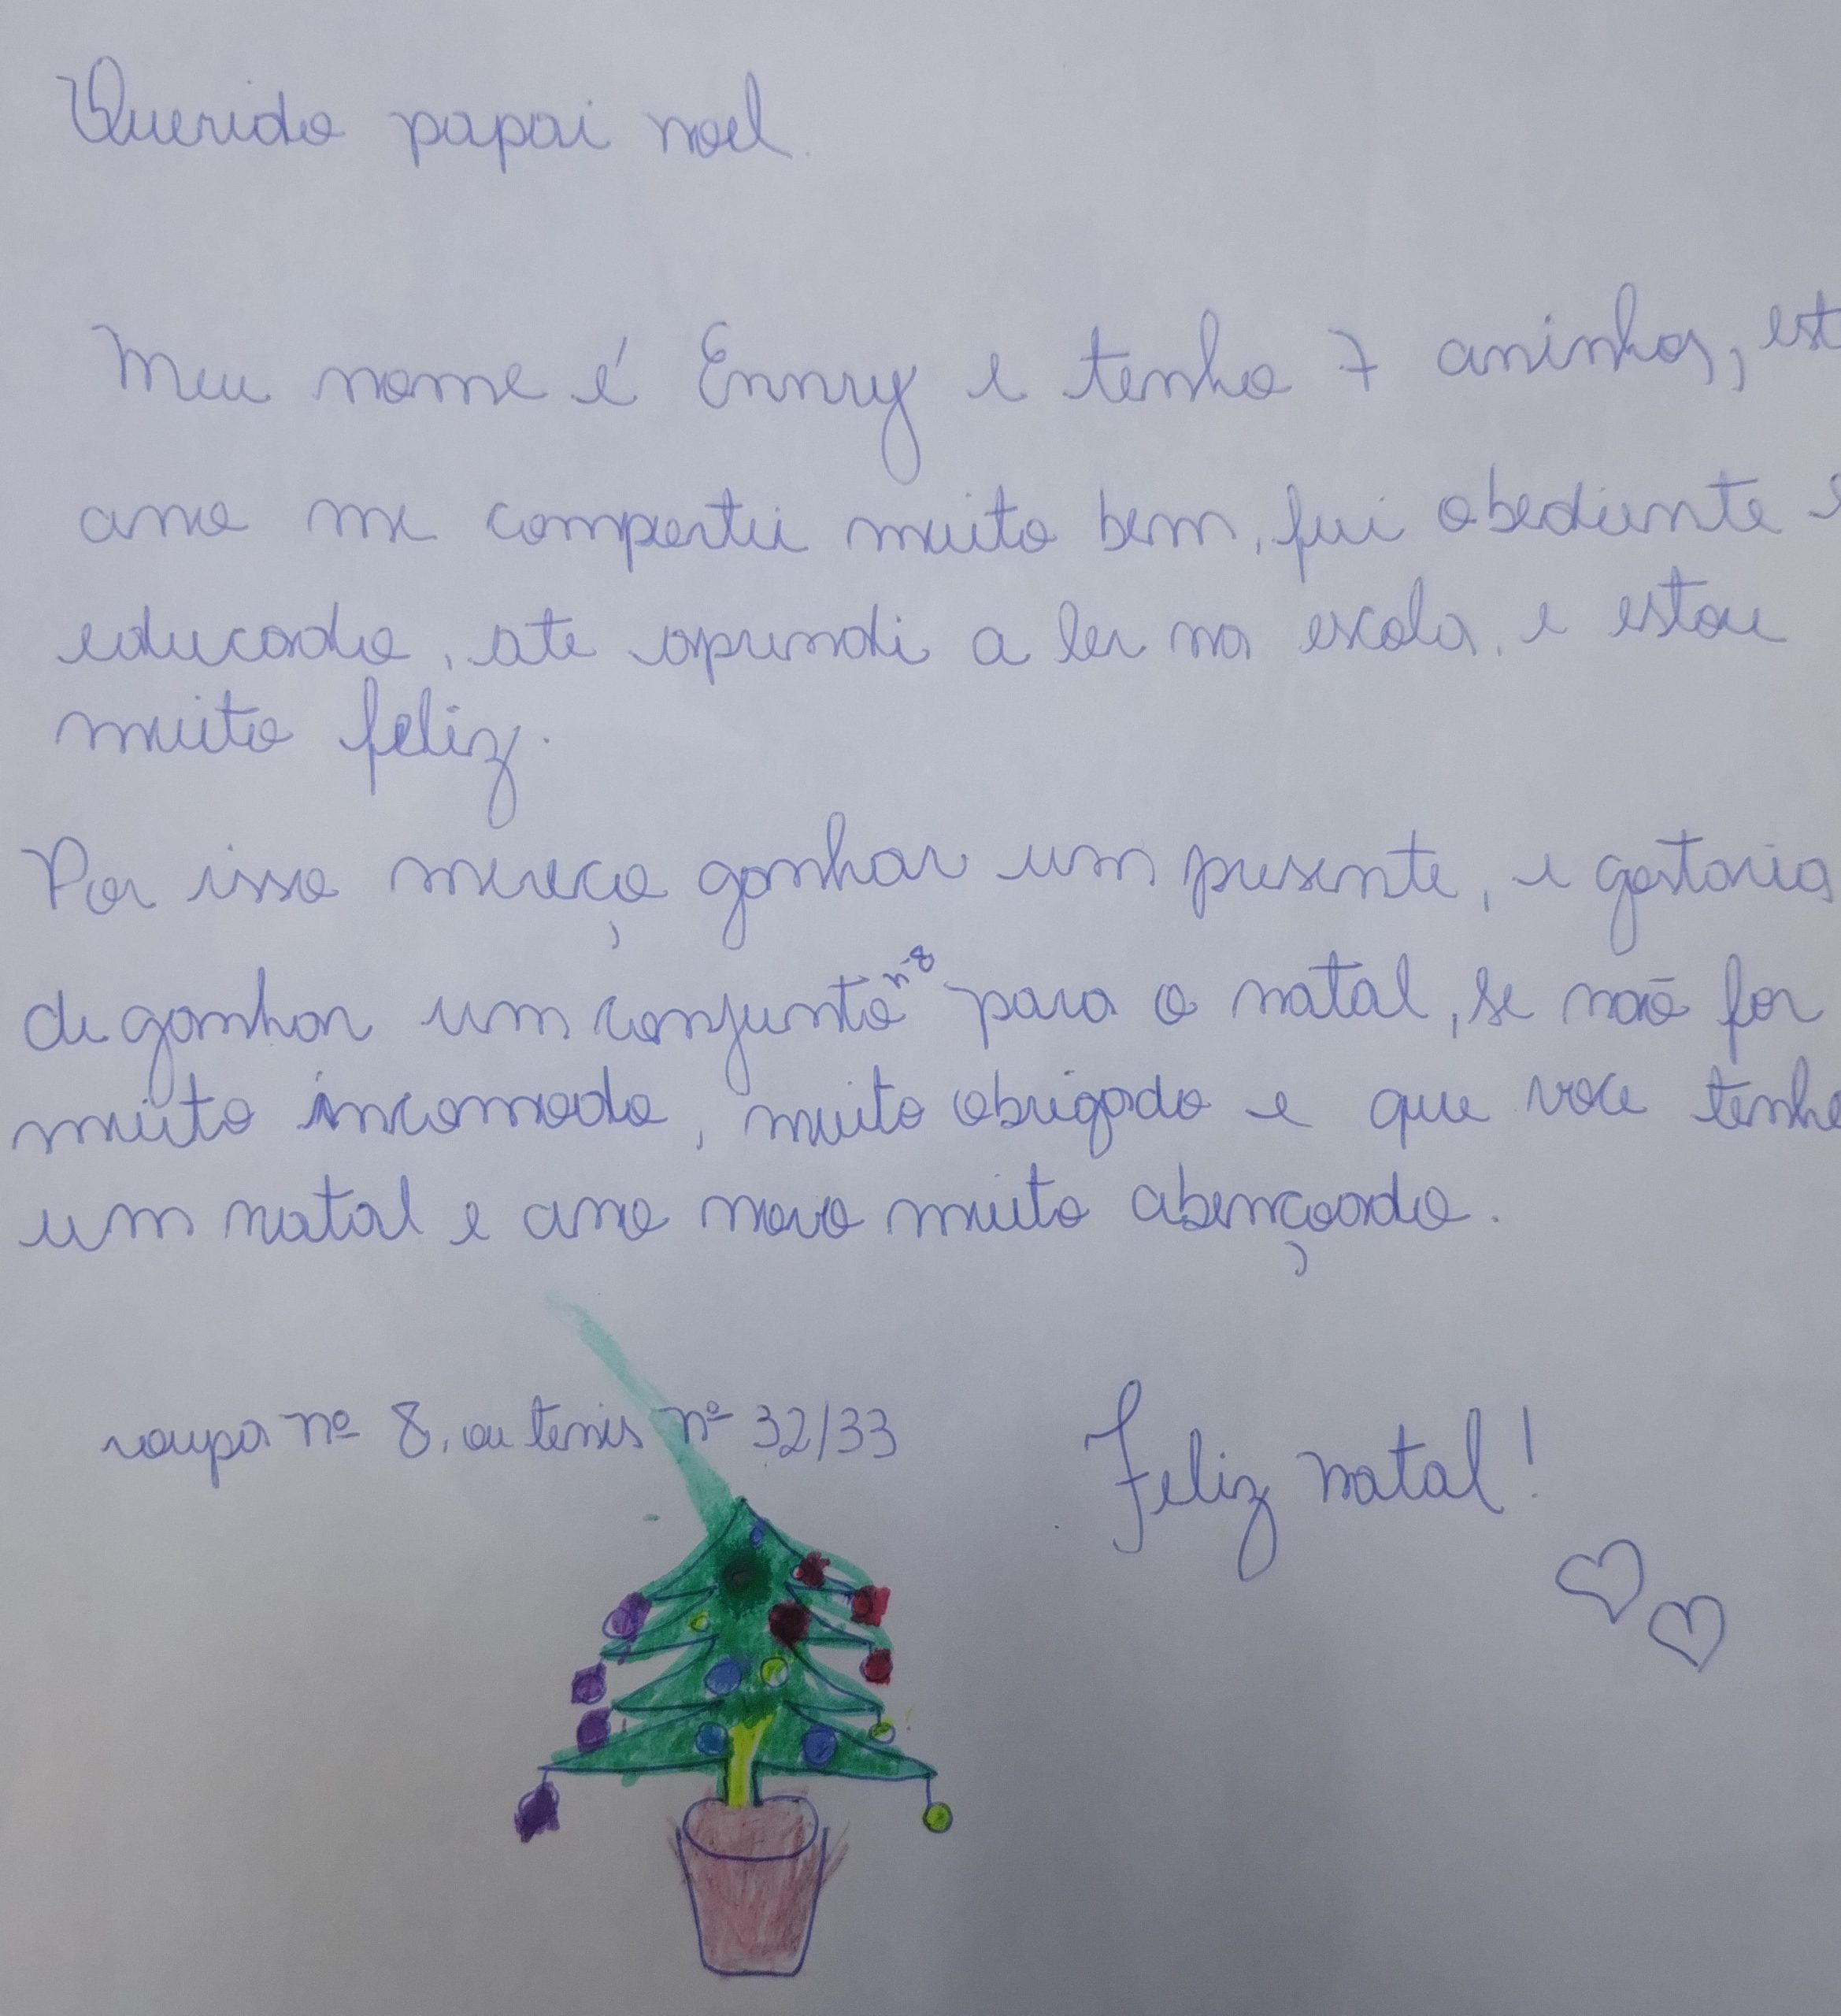 Querido papai noel.
Meu nome é Ennry e tenho 7 aninhos, est
ano me comportei muito bem, fui obediente e
educado, ate aprendi a ler na escola, e estou
muito feliz.
Por isso mereço ganhar um presente, e gostaria
de ganhar um conjunto nº8 para o natal, se não for
muito incomodo, muito obrigado e que voce tenha
um natal e ano novo muito abençoado.
roupa nº 8, ou tenis nº 32/33
Feliz natal!